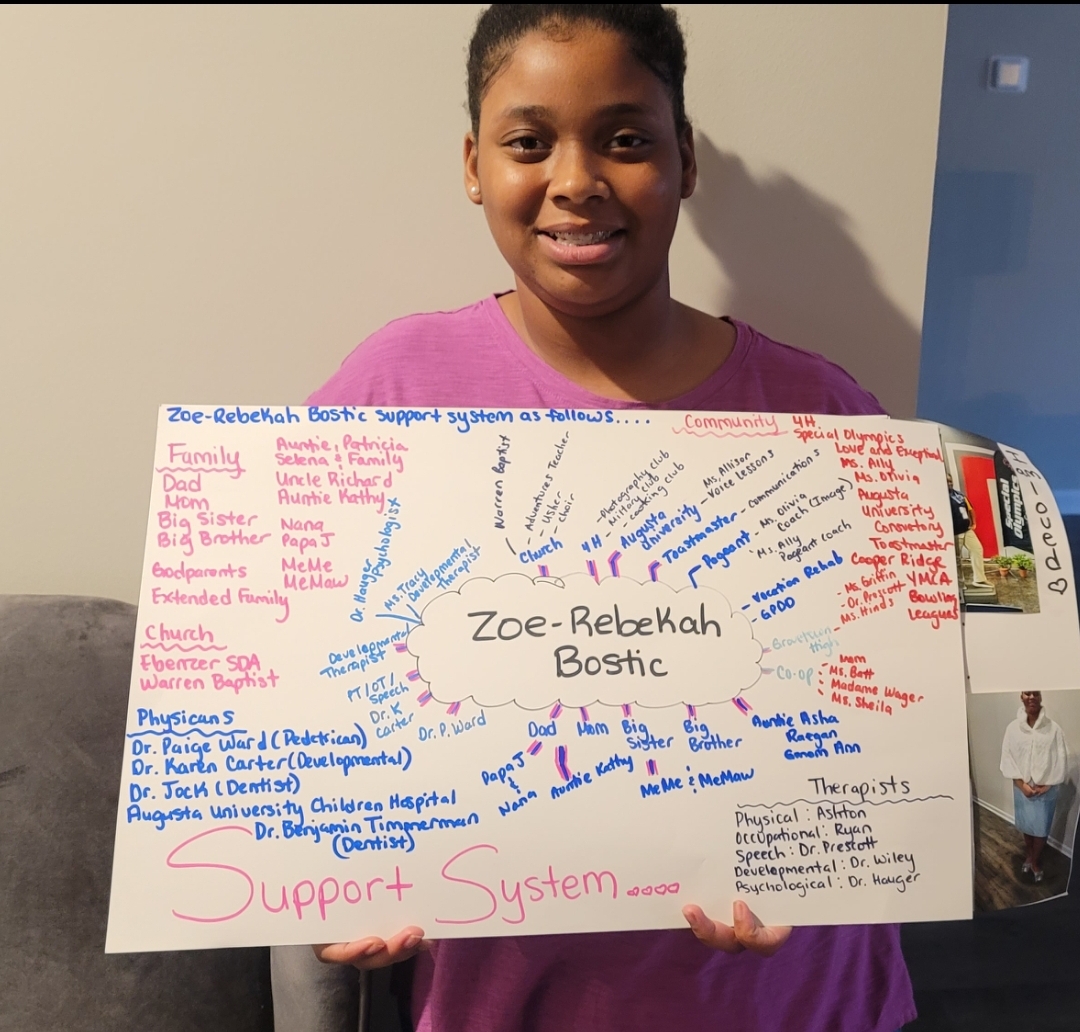 Zoe-Rebekah Bostic support system as follows....
Family
Dad
Mom
Big Sister
Big Brother
Godparents
Extended Family
Auntie, Patricia
Selena & Family
Uncle Richard
Auntie Kathy
Nana
Papa J
MeMe
MeMaw
Church
Ebenzer SDA
Warren Baptist
Physicans
Dr. Paige Ward (Pedetrican)
Dr. Karen Carter (Developmental)
Dr. Jock (Dentist)
Augusta University Children Hospital
Dr. Benjamin Timmerman
(Dentist)
Dr. Hauger
Psychologist
Ms. Tracy
Developmental
Therapist
Warren Baptist
- Adventures Teacher
- Usher
- choir
Church
- Photography club
- Military club
- cooking club
4H
Augusta
University
Ms. Allison
- Voice Lessons
Toastmaster - Communications
Pageant
- Ms. Olivia
Coach (Image)
- Ms. Ally
Pageant coach
Community
4H
Special Olympics
Love and Exceptional
Ms. Ally
Ms. Olivia
Augusta
University
Consvetory
Toastmaster
Cooper Ridge
YMCA
Bowling
Leagues
- Vocation Rehab
- GPDD
Grovetown
High
- Ms. Griffin
- Dr. Prescott
- Ms. Hinds
Co-op
Mom
Ms. Batt
Madame Wager
Ms. Sheila
Zoe-Rebekah
Bostic
Developmental
Therapist
PT/OT/
Speech
Dr. K
Carter
Dr. P. Ward
Dad
Mom
Big
Sister
Big
Brother
Auntie Asha
Raegan
Ann
Papa J
&
Nana
Auntie Kathy
MeMe & MeMaw
Therapists
Physical : Ashton
Occupational : Ryan
Speech : Dr. Prescott
Developmental : Dr. Wiley
Psychological : Dr. Hauger
Support System....
Special
Olympics